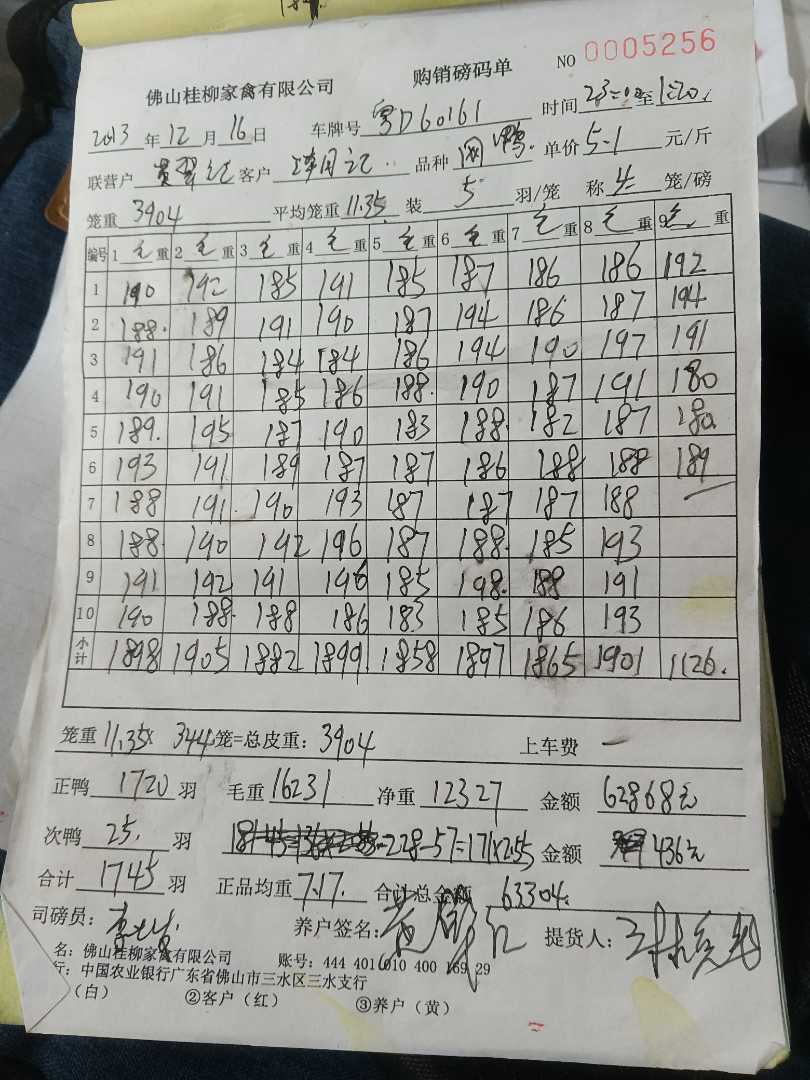 佛山桂柳家禽有限公司 购销磅码单 NO 0005256
2013年12月16日 车牌号 粤D60161 时间 至
联营户 客户 品种 单价 5.1 元/斤
笼重 3904 平均笼重 11.35 装 5 羽/笼 称 4 笼/磅
编号 1 毛重 2 毛重 3 毛重 4 毛重 5 毛重 6 毛重 7 毛重 8 毛重 9 毛重
1 190 192 185 191 185 187 186 186 192
2 188. 189 191 190 187 194 186 187 194
3 191 186 184 184 186 194 190 197 191
4 190 191 185 186 188. 190 187 191 180
5 189. 195 187 190 183 188. 182 187 180
6 193 191 189 187 187 186 188 188 189
7 188 191. 190 193 187 187 187 188
8 188. 190 192 196 187 188. 185 193
9 191 192 191 196 185 198. 188 191
10 190 188. 188 186 183 185 186 193
小计 1898 1905 1882 1899. 1858 1897 1865 1901 1126.
笼重 11.35× 344笼=总皮重: 3904 上车费 一
正鸭 1720 羽 毛重 16231 净重 12327 金额 62868元
次鸭 25. 羽 228-57=171×2.55 金额 436元
合计 1745 羽 正品均重 7.17. 合计总金额 63304元
司磅员: 养户签名: 提货人:
名: 佛山桂柳家禽有限公司 账号: 444 401 010 400 169 29
行: 中国农业银行广东省佛山市三水区三水支行
(白) ②客户(红) ③养户(黄)